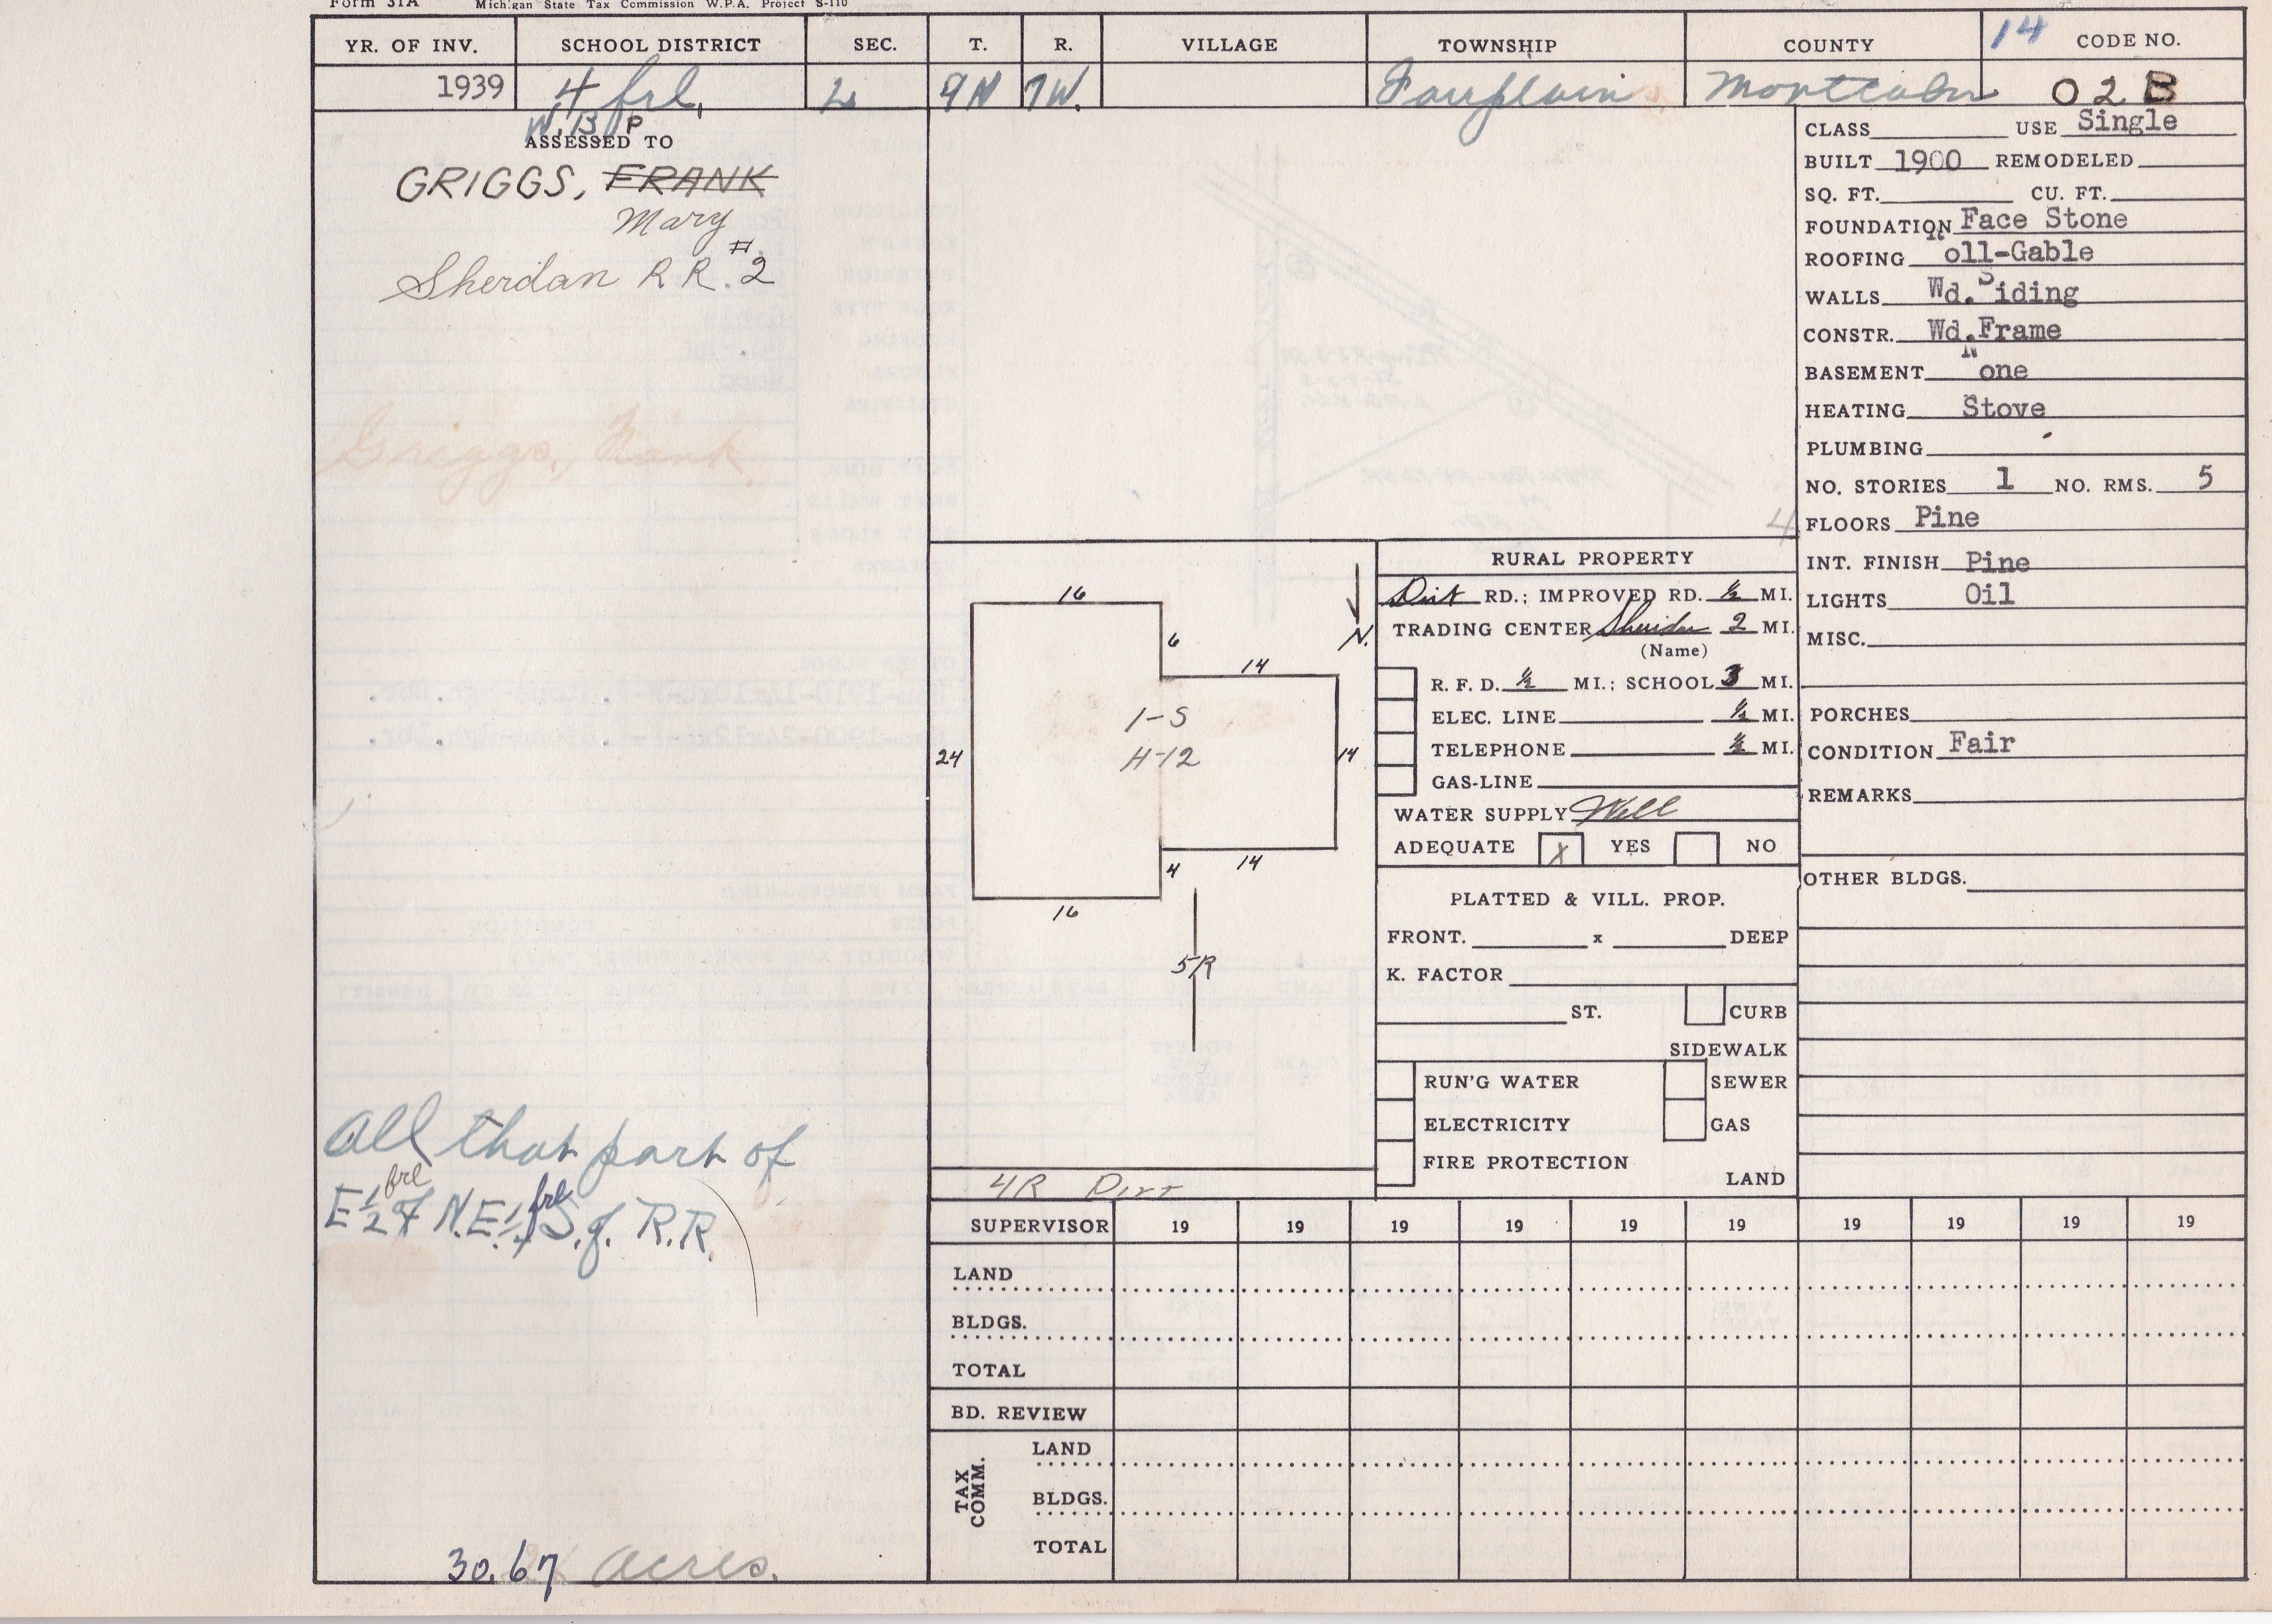 Form 31A Michigan State Tax Commission W.P.A. Project S-110
YR. OF INV. SCHOOL DISTRICT SEC. T. R. VILLAGE TOWNSHIP COUNTY 14 CODE NO.
1939 4 frl. 9N 7W. Fairplain Montcalm 02B
ASSESSED TO
GRIGGS, FRANK
Mary
Sherdan R R. #2
Griggs, Frank
All that part of
E 1/2 frl of N.E. 1/4 frl S. of R.R.
30.67 acres.
16
6
14
1-S
H-12
24
14
14
4
16
N.
5R
4R Dirt
RURAL PROPERTY
Dirt RD.; IMPROVED RD. ½ MI.
TRADING CENTER Sheridan 2 MI.
(Name)
R. F. D. ½ MI.; SCHOOL 3 MI.
ELEC. LINE ½ MI.
TELEPHONE ½ MI.
GAS-LINE
WATER SUPPLY Well
ADEQUATE X YES NO
PLATTED & VILL. PROP.
FRONT. x DEEP
K. FACTOR
ST. CURB
SIDEWALK
RUN'G WATER SEWER
ELECTRICITY GAS
FIRE PROTECTION
LAND
CLASS USE Single
BUILT 1900 REMODELED
SQ. FT. CU. FT.
FOUNDATION Face Stone
ROOFING Roll-Gable
WALLS Wd. Siding
CONSTR. Wd.Frame
BASEMENT None
HEATING Stove
PLUMBING
NO. STORIES 1 NO. RMS. 5
4
FLOORS Pine
INT. FINISH Pine
LIGHTS Oil
MISC.
PORCHES
CONDITION Fair
REMARKS
OTHER BLDGS.
SUPERVISOR 19 19 19 19 19 19 19 19 19 19
LAND
BLDGS.
TOTAL
BD. REVIEW
TAX COMM.
LAND
BLDGS.
TOTAL